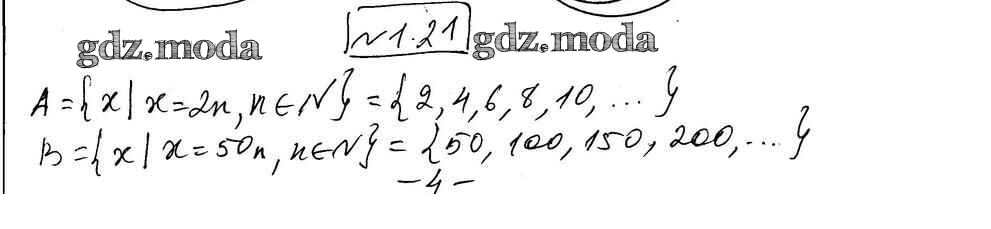 gdz.moda №1.21 gdz.moda
A={x|x=2n, n∈N}={2,4,6,8,10,...}
B={x|x=50n, n∈N}={50, 100, 150, 200,...}
-4-